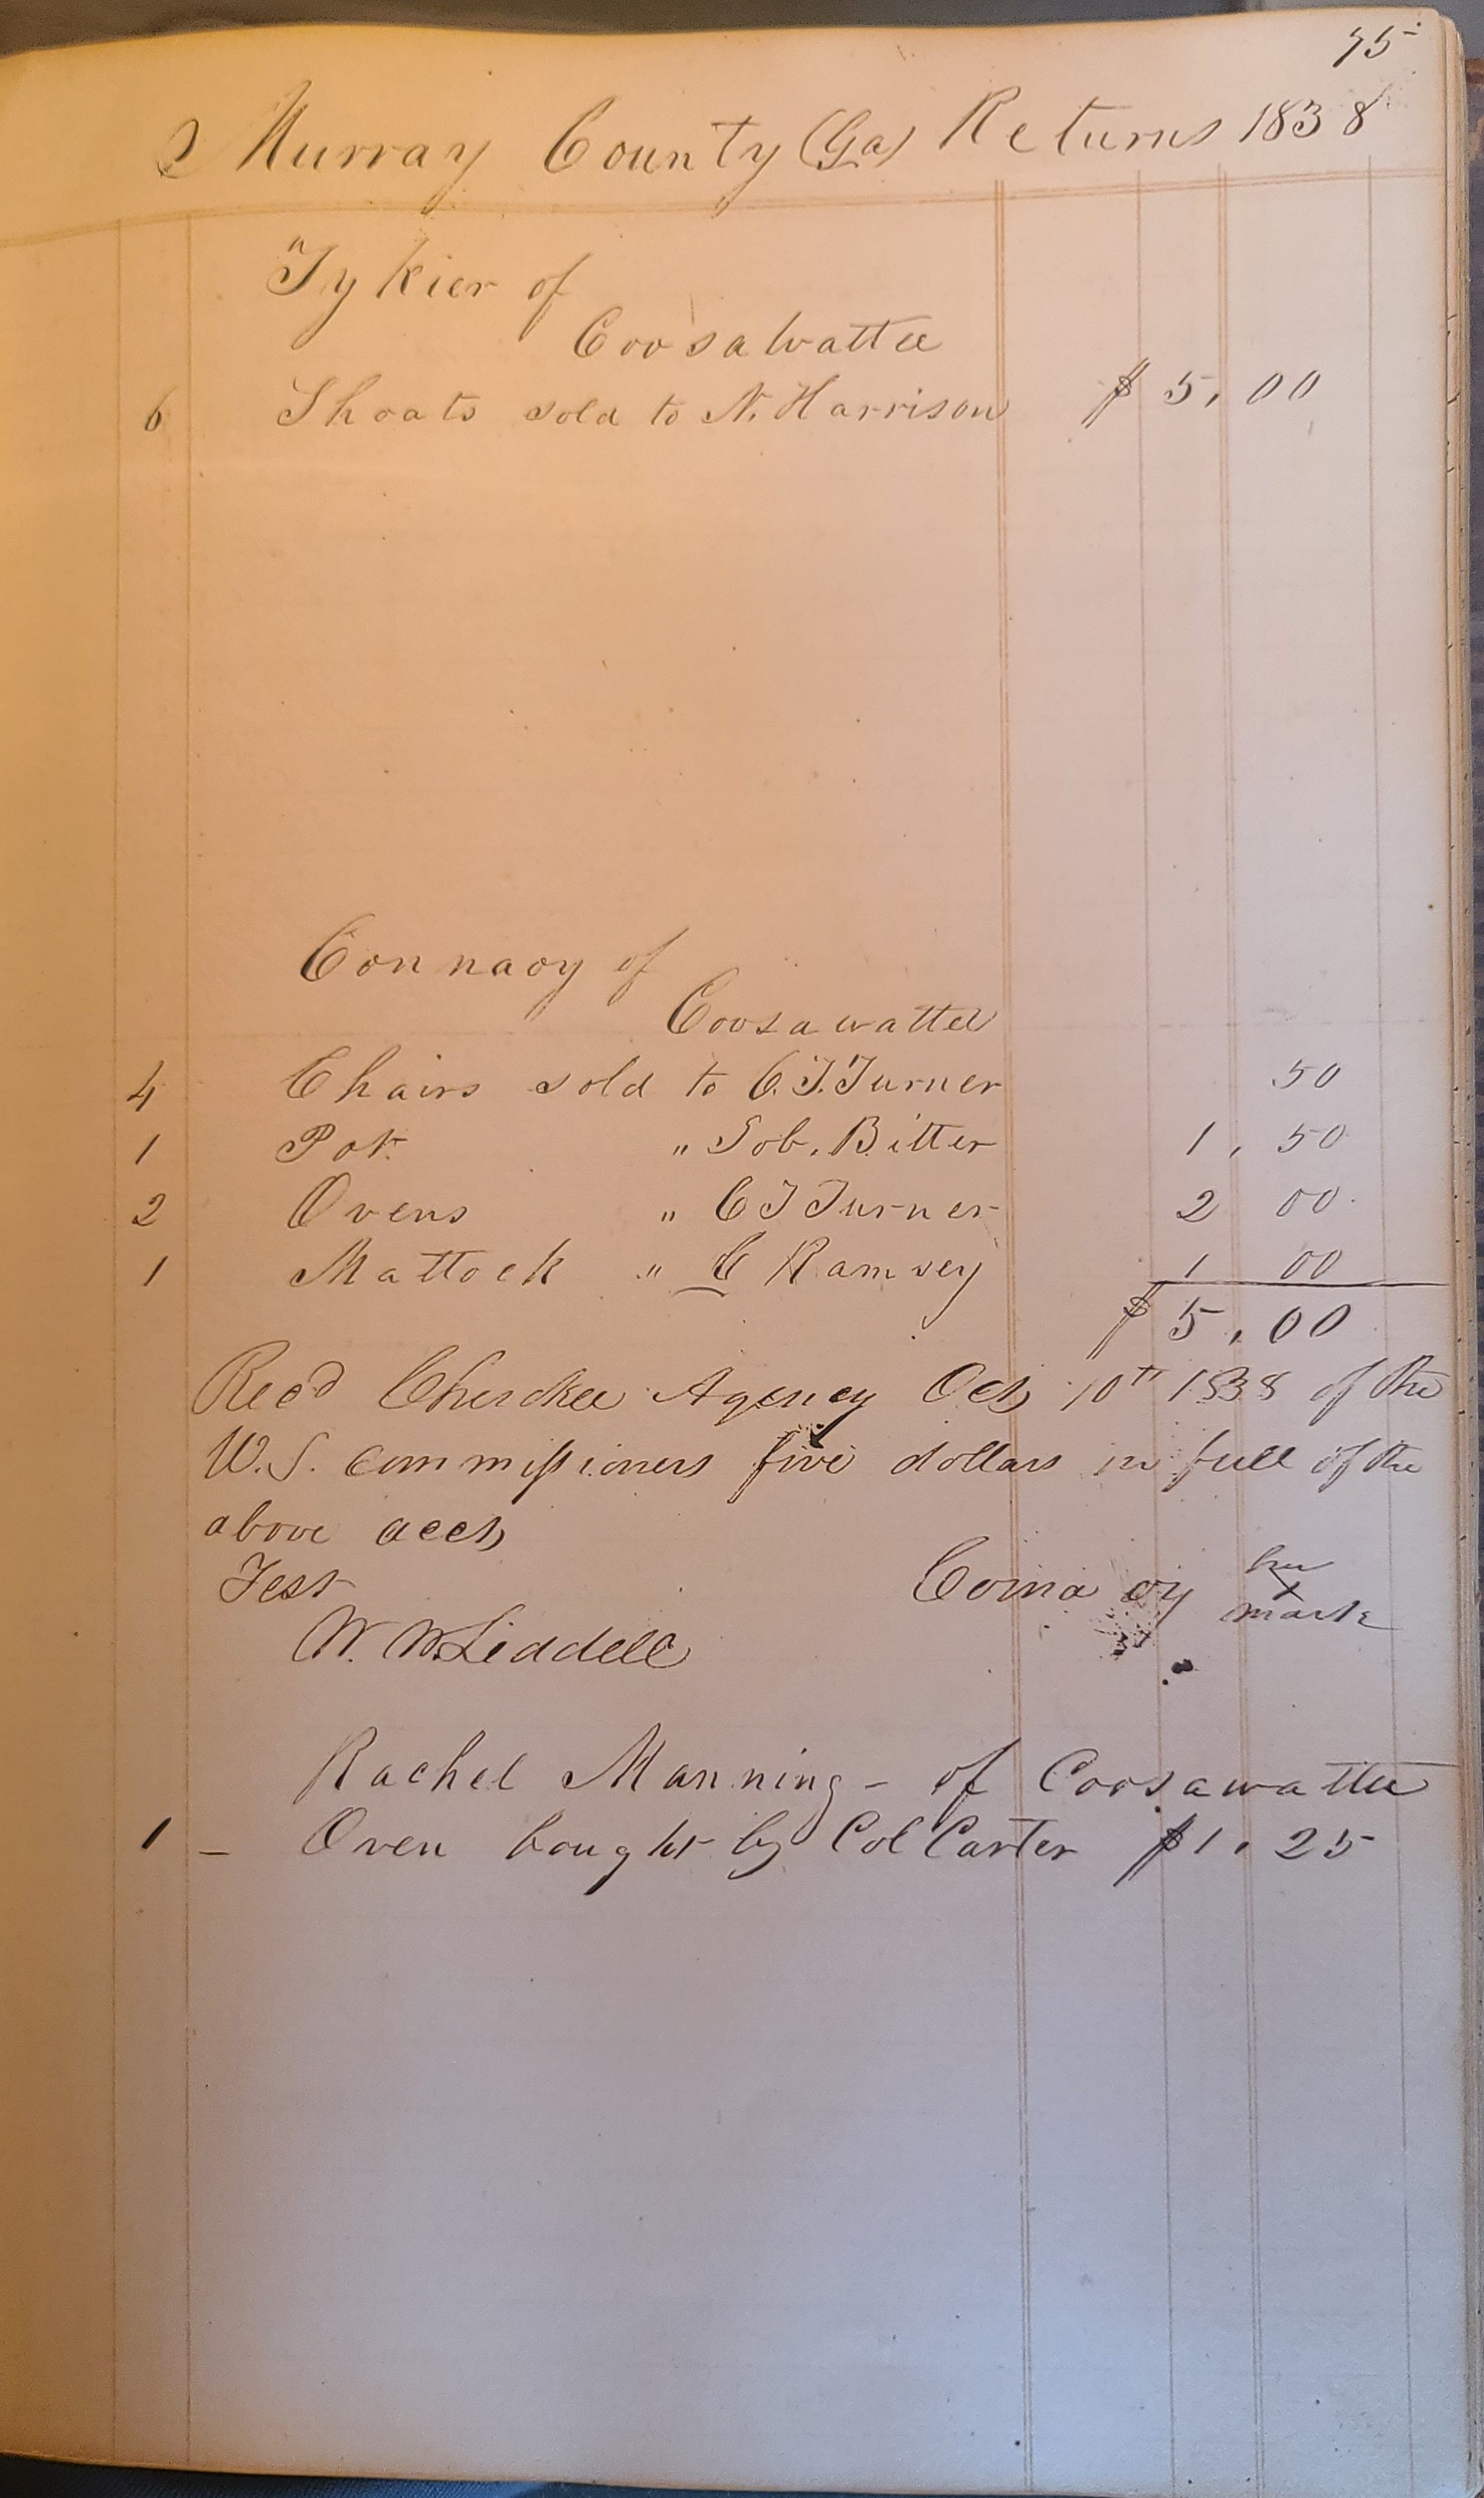 75
Murray County (Ga) Returns 1838
"Tykier of
Coosawattee
6 Shoats sold to N. Harrison $5,00
Connaoy of
Coosawattee
4 Chairs sold to C. T. Turner .50
1 Pot " Sob. Bitter 1,50
2 Ovens " C T Turner 2 00
1 Mattock " C Ramsey 1 00
$5,00
Recd Cherokee Agency Oct 10th 1838 of the
U.S. Commissioners five dollars in full of the
above acct
Test
Conna oy her
x
mark
W. W. Liddell
Rachel Manning - of Coosawattee
1 - Oven bought by Col Carter $1,25